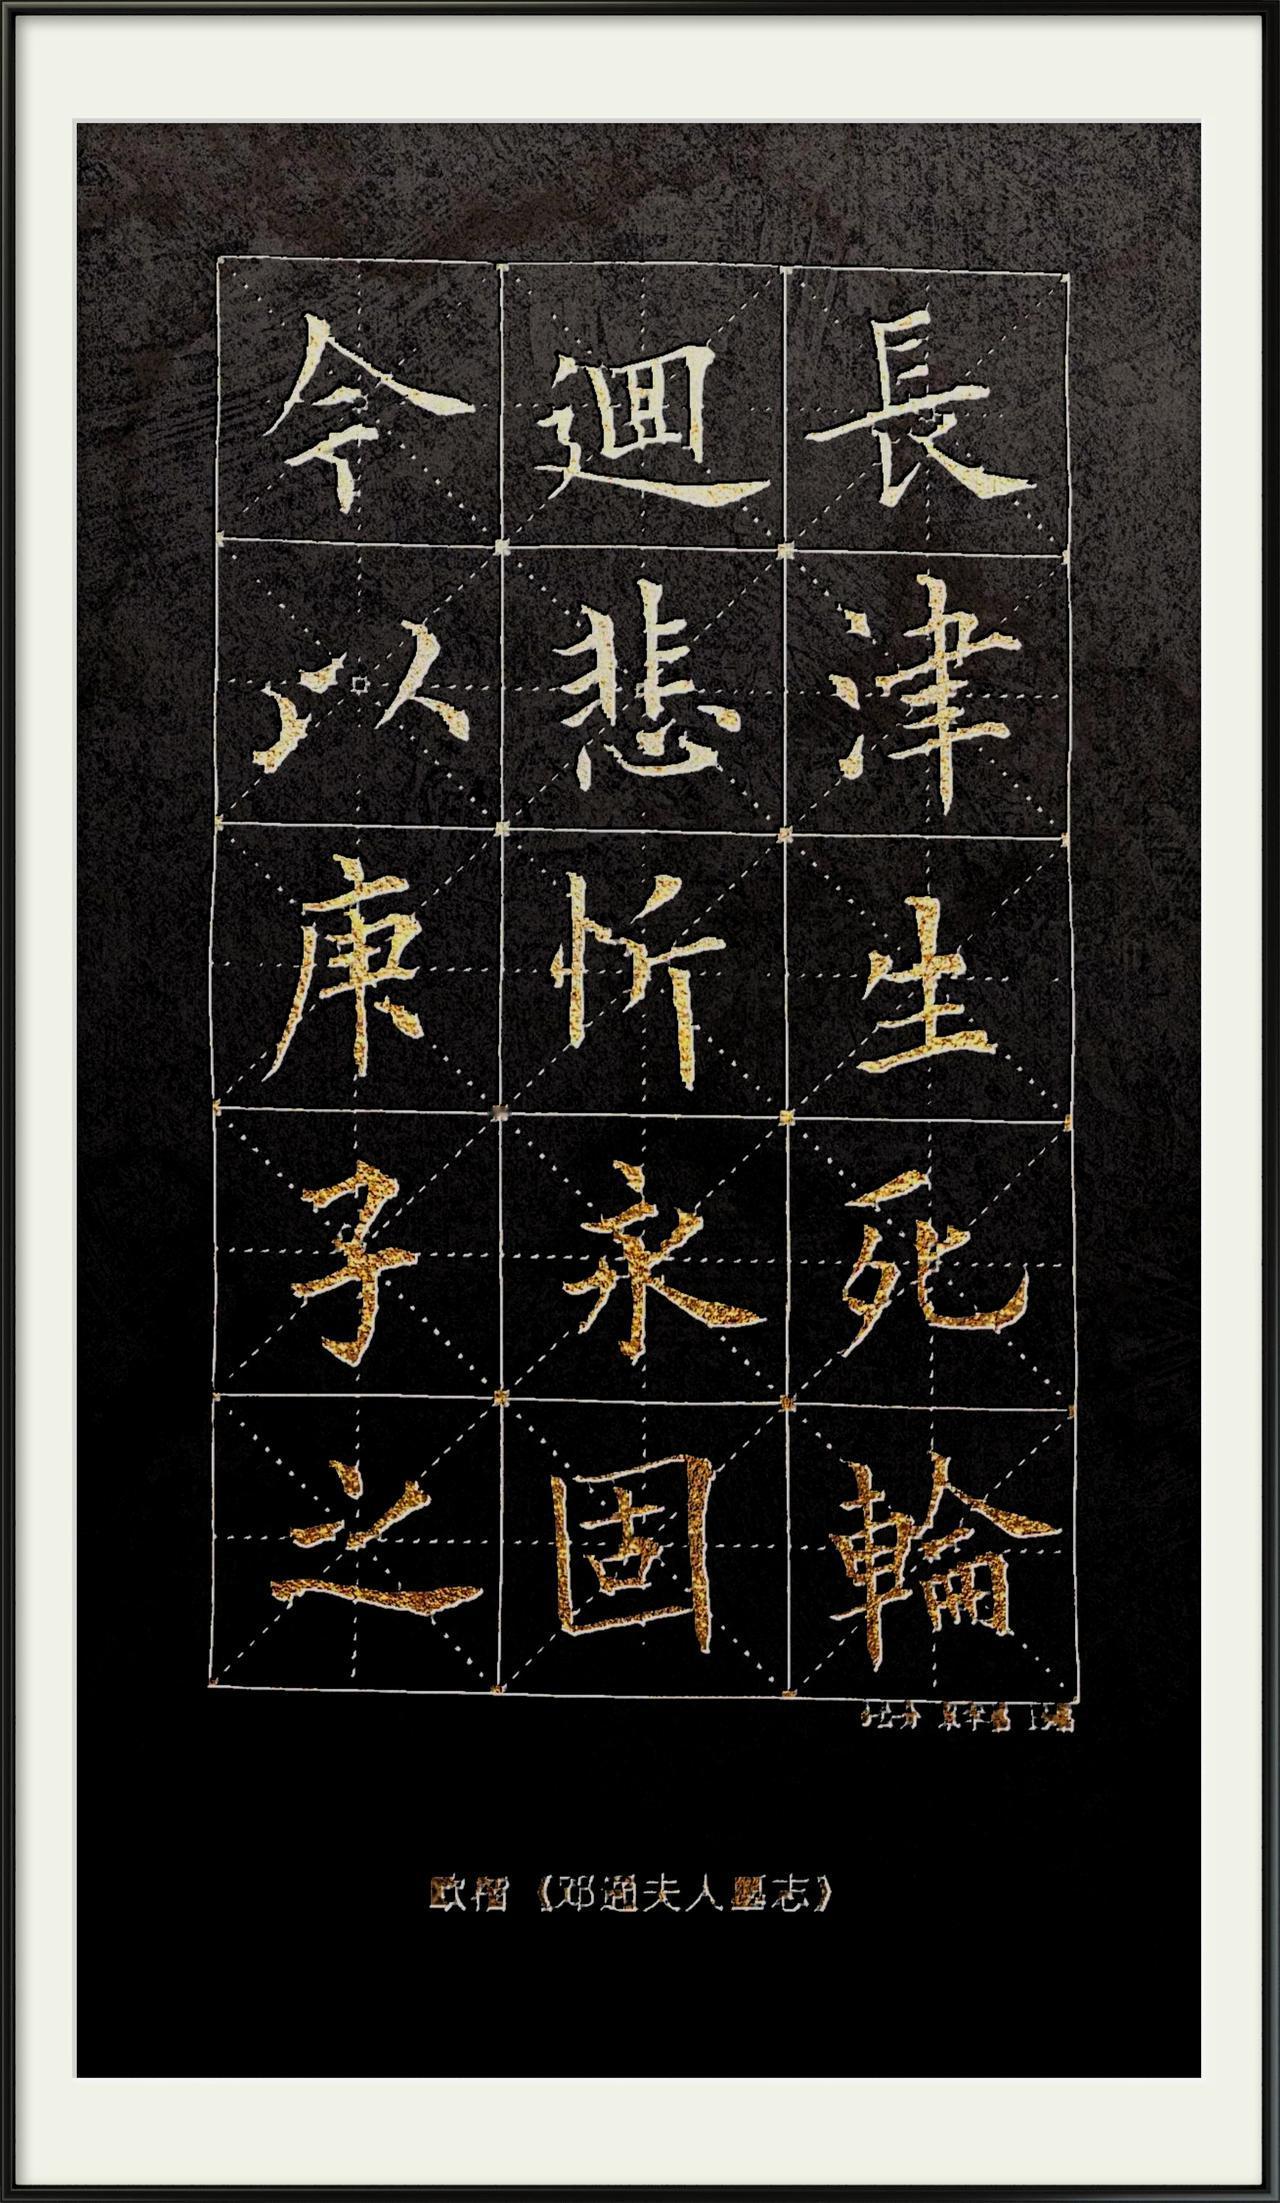 長津生死輪
迴悲忻永固
今以庚子之
欧楷《邓通夫人墓志》